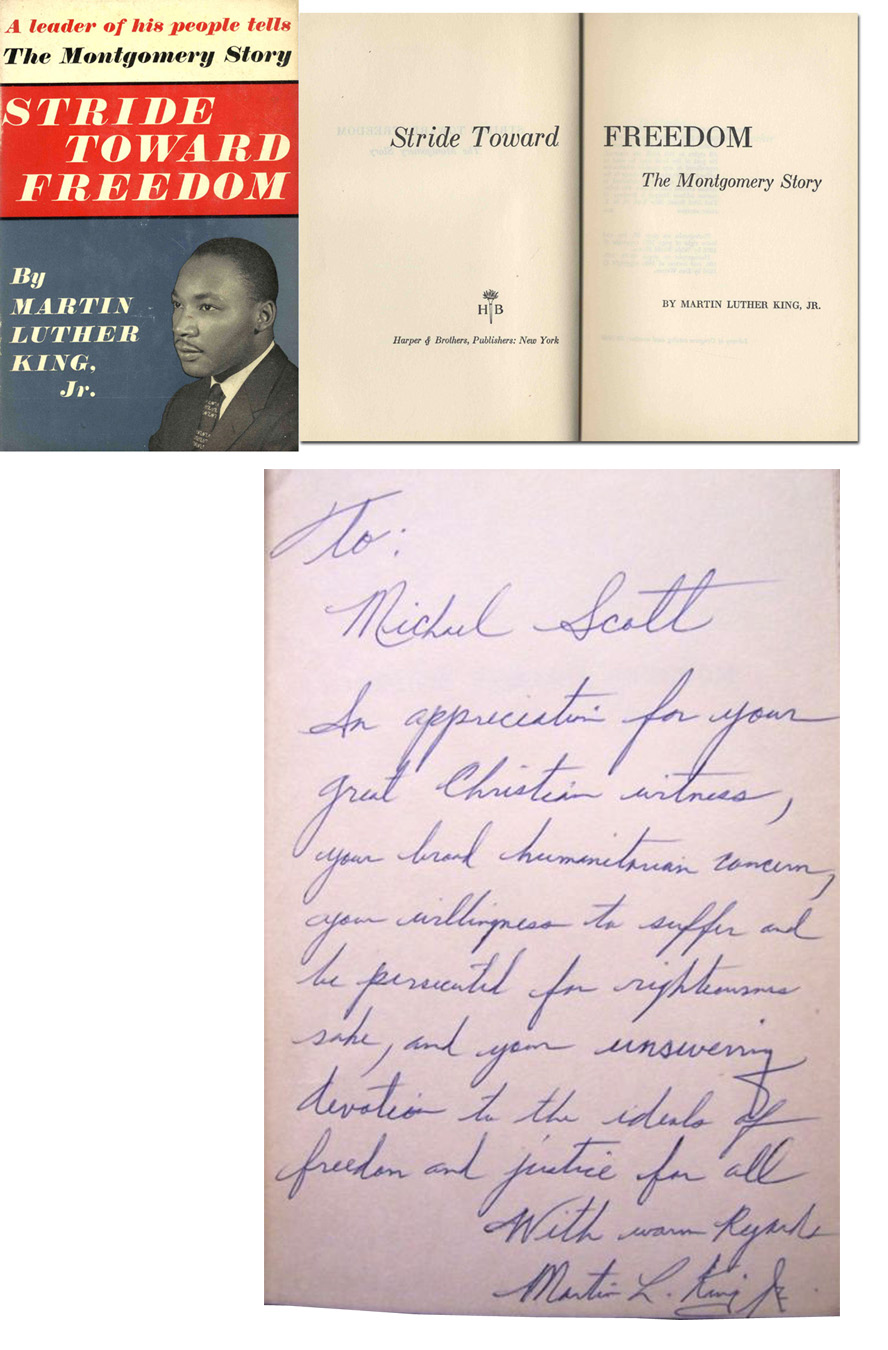 A leader of his people tells
The Montgomery Story
STRIDE
TOWARD
FREEDOM
By
MARTIN
LUTHER
KING,
Jr.
Stride Toward
H B
Harper & Brothers, Publishers: New York
FREEDOM
The Montgomery Story
BY MARTIN LUTHER KING, JR.
To:
Michael Scott
In appreciation for your
great Christian witness,
your broad humanitarian concern,
your willingness to suffer and
be persecuted for righteousness
sake, and your unswerving
devotion to the ideals of
freedom and justice for all
With warm Regards
Martin L. King Jr.